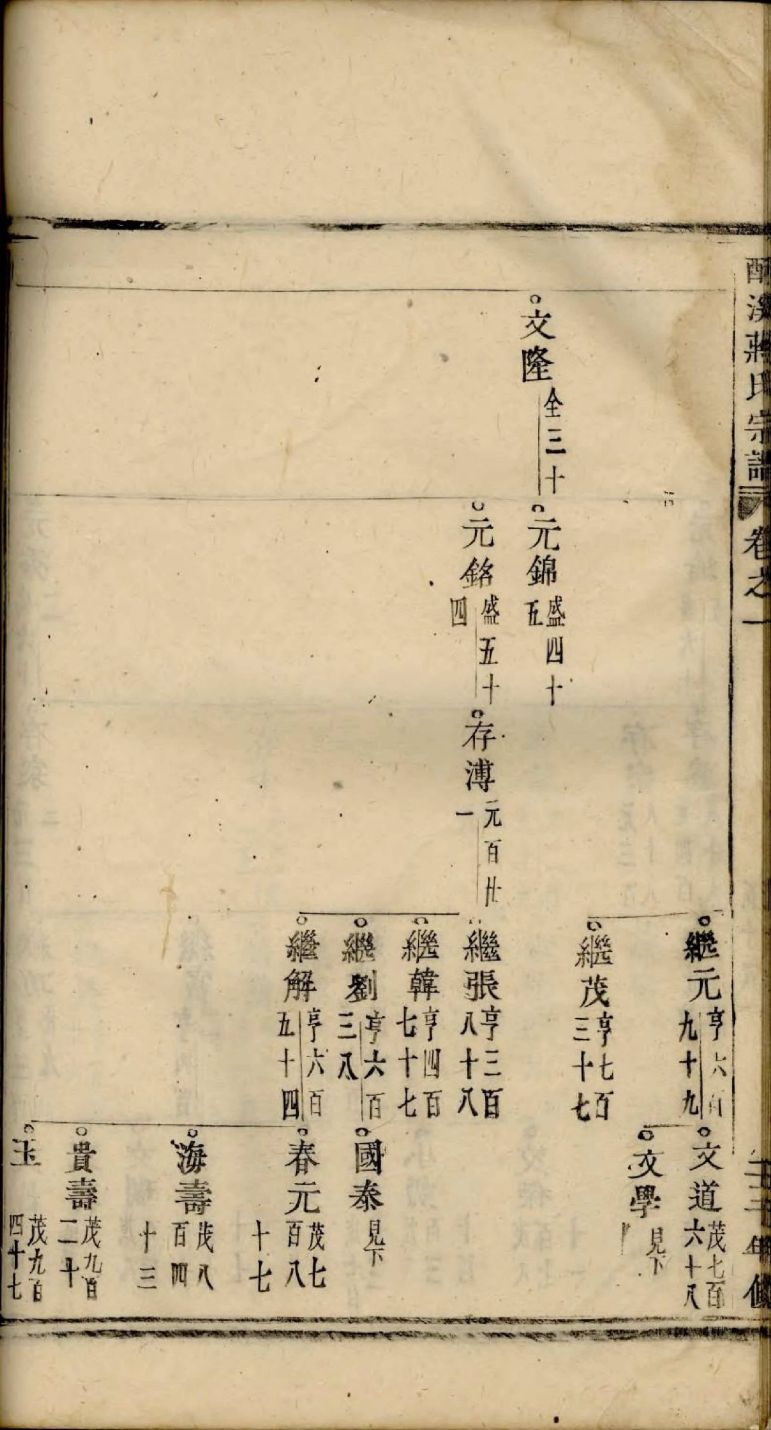 蔣氏宗譜
卷之一
文隆 全三十
元錦 盛四十五
元銘 盛五十四
存溥 元百廿一
繼元 亨六百九十九
繼茂 亨七百三十七
繼張 亨三百八十八
繼韓 亨四百七十七
繼劉 亨六百三八
繼解 亨六百五十四
文道 茂七百六十八
文學 見下
國泰 見下
春元 茂七百八十七
海壽 茂八百四十三
貴壽 茂九百二十
玉 茂九百四十七